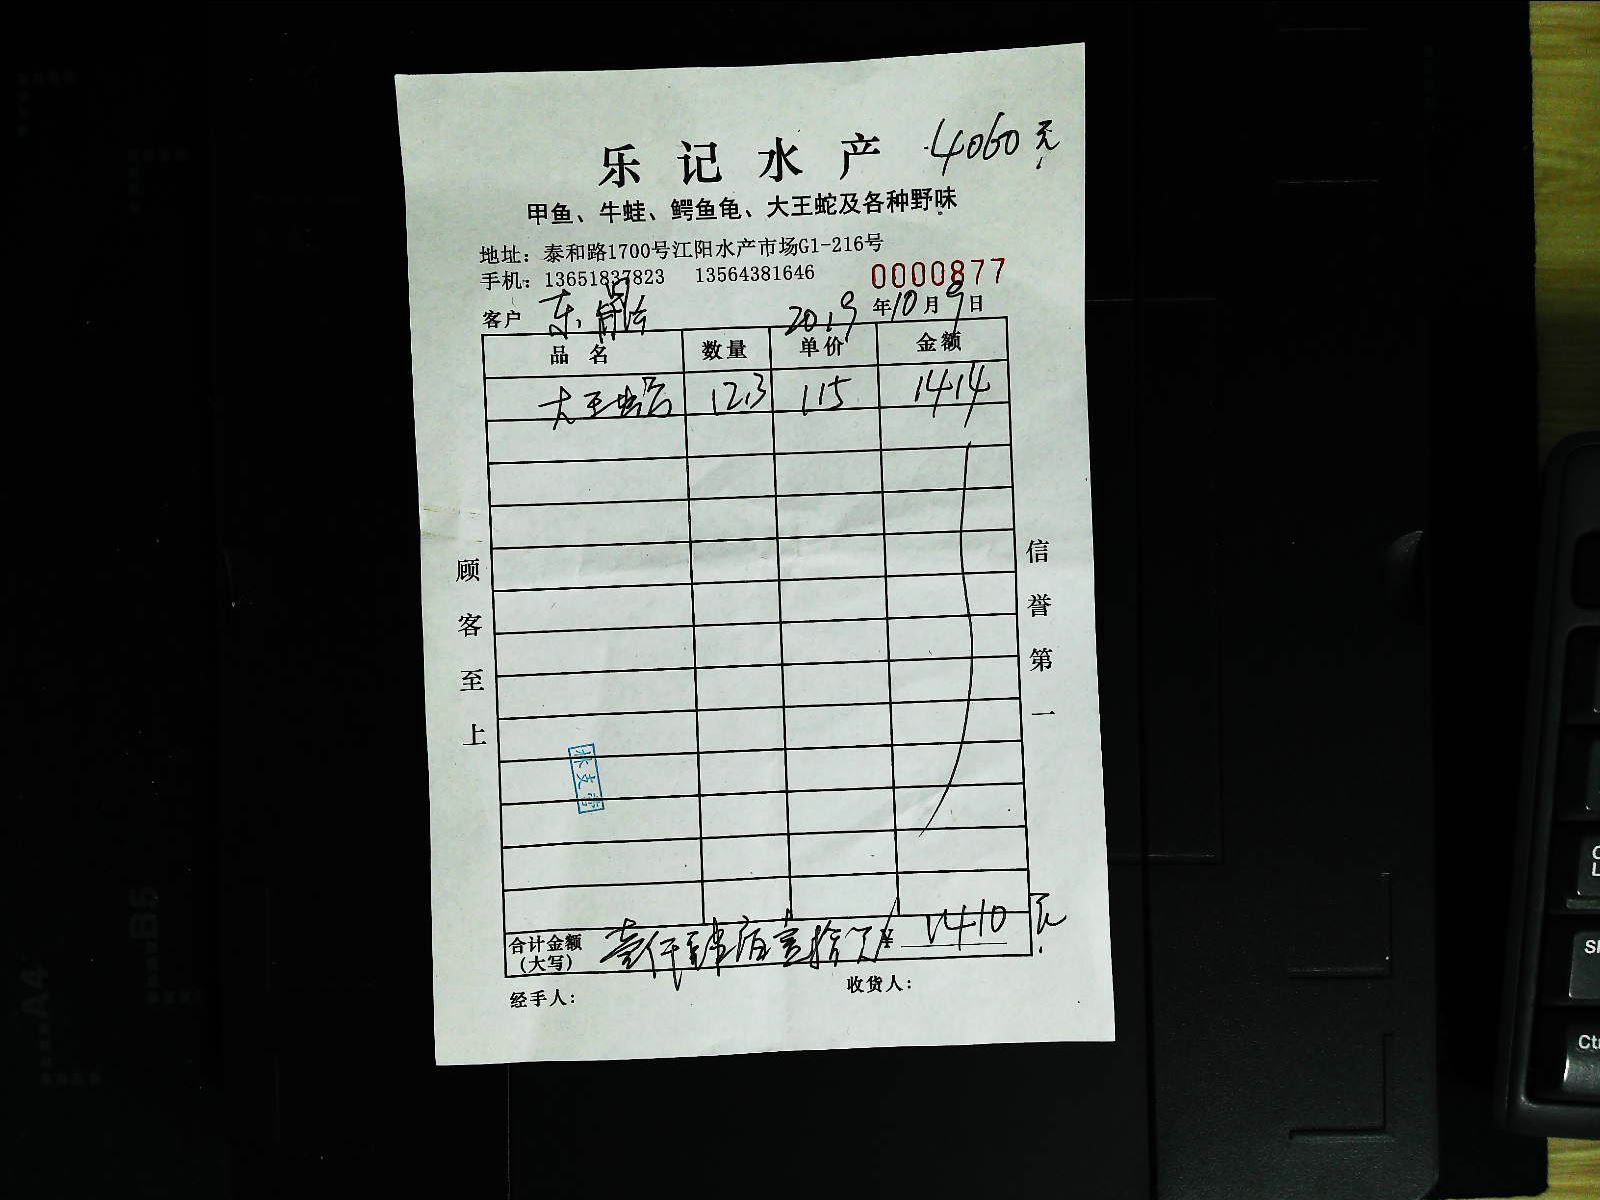 乐记水产 4060元
甲鱼、牛蛙、鳄鱼龟、大王蛇及各种野味
地址：泰和路1700号江阳水产市场G1-216号
手机：13651837823 13564381646 0000877
客户 2019年10月9日
品名 数量 单价 金额
大王蛇 12.3 115 1414
顾客至上
信誉第一
合计金额(大写) 壹仟肆佰壹拾元 ¥ 1410元
经手人： 收货人：
B5
A4